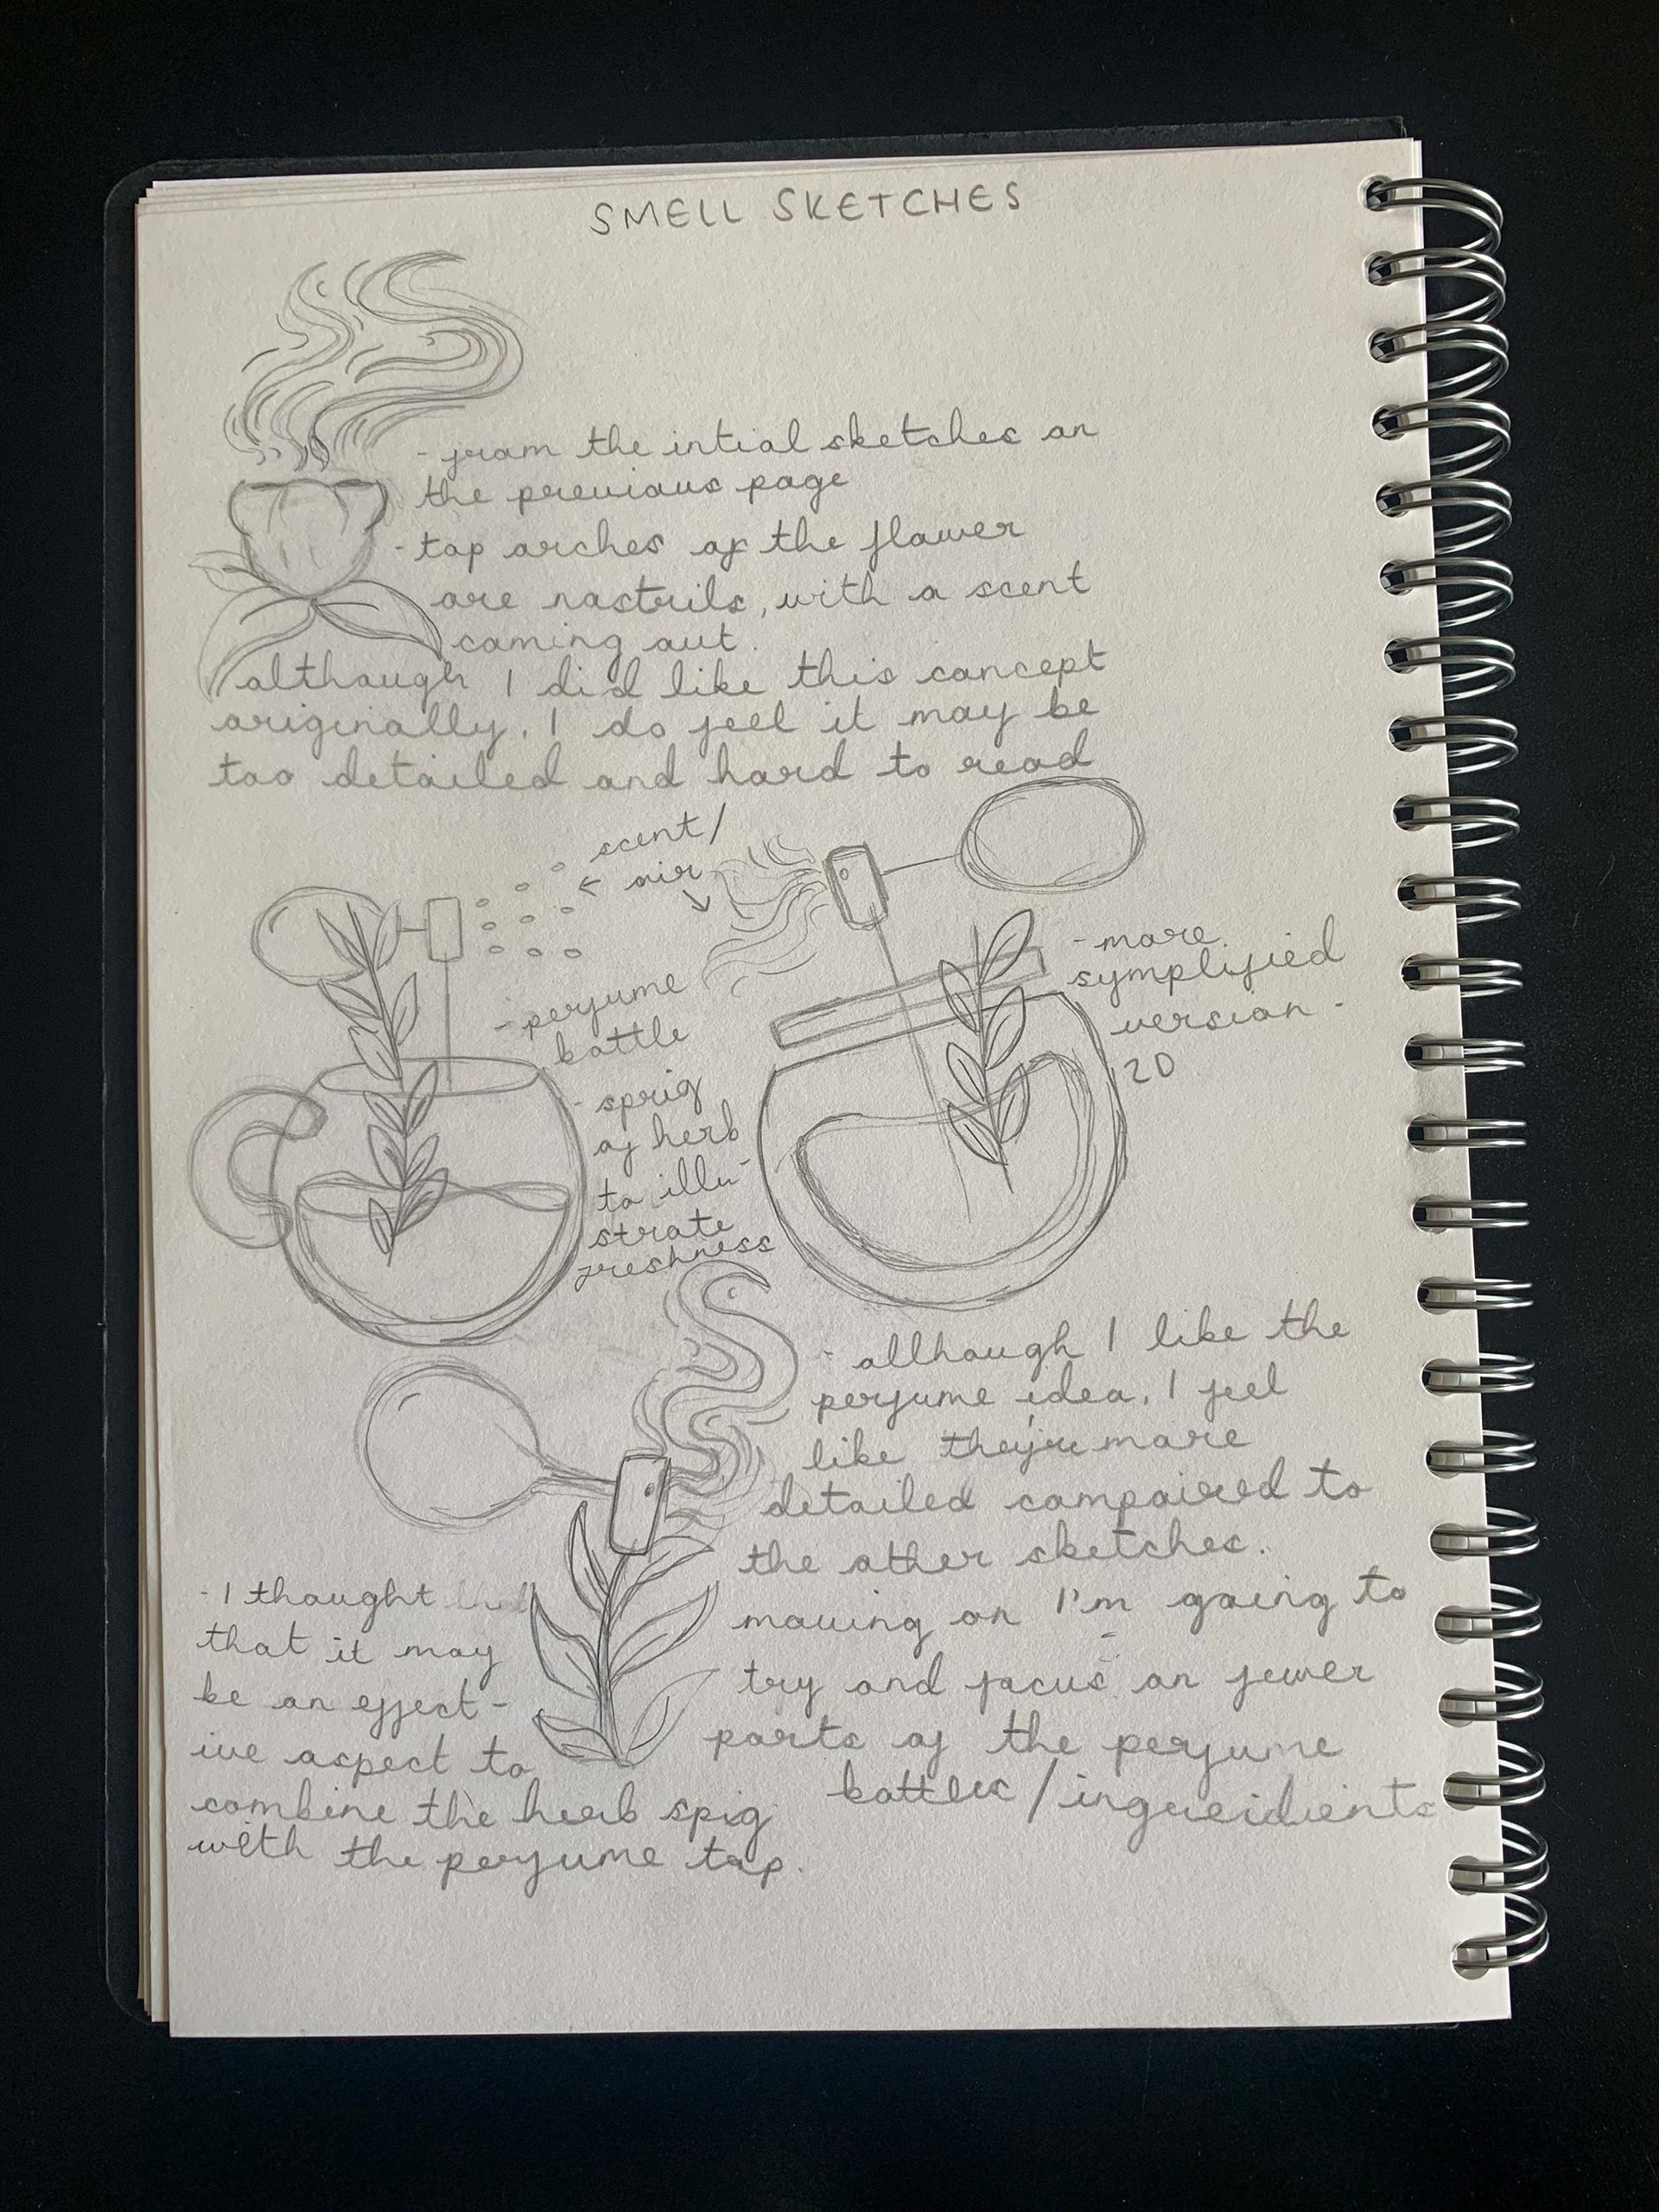 SMELL SKETCHES
- from the intial sketches on
the previous page
- top arches of the flower
are nostrils, with a scent
coming out.
although I did like this concept
originally, I do feel it may be
too detailed and hard to read
scent/
← air
- perfume
bottle
- sprig
of herb
to illu-
strate
freshness
- more
symplified
version -
2D
- although I like the
perfume idea, I feel
like they're more
detailed compaired to
the other sketches.
moving on I'm going to
try and focus on fewer
parts of the perfume
bottles/ingreidients
- I thought
that it may
be an effect-
ive aspect to
combine the herb spig
with the perfume top.